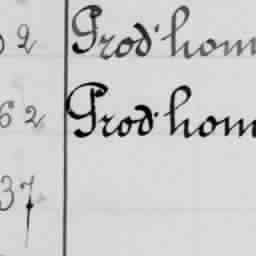 2 Prod'hom
62 Prod'hom
37